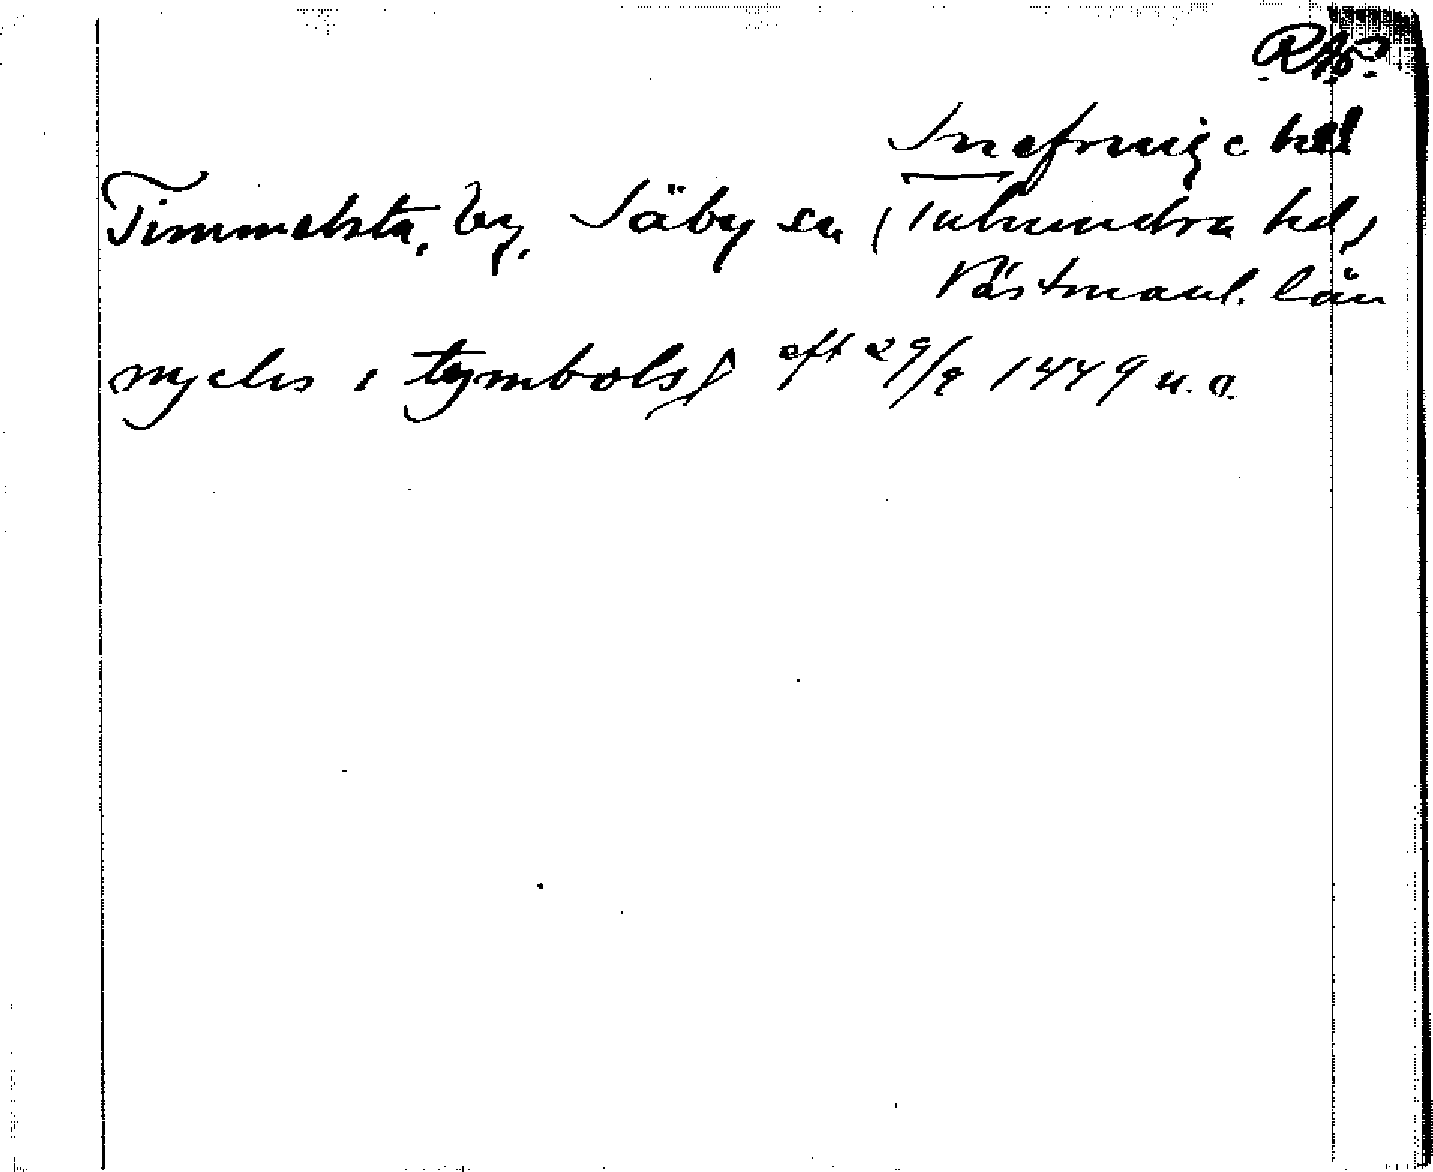 RAp.
Snefringe hd
Timmelsta, by, Säby sn (Tuhundra hd,)
Västmanl. län
nyclis i tymbolsz eft 29/9 1449 u. a.